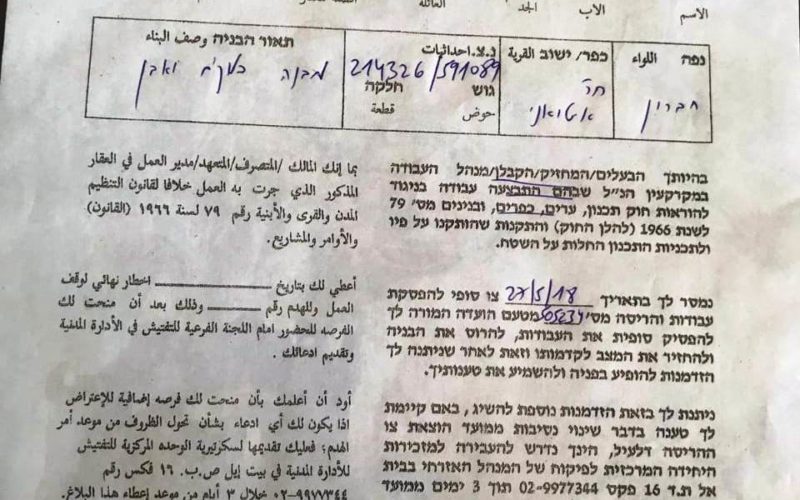 الاسم الاب الجد العائلة
נפה اللواء
חברון
כפר/ ישוב القرية
נ.צ. احداثيات
214326/591089
גוש חלקה
حوض قطعة
תאור הבניה وصف البناء
מבנה ואבן
בהיותך הבעלים/המחזיק/הקבלן/מנהל העבודה
במקרקעין הנ"ל שבהם התבצעה עבודה בניגוד
להוראות חוק תכנון, ערים, כפרים, ובנינים מס' 79
לשנת 1966 (להלן החוק) והתקנות שהותקנו על פיו
ולתכניות התכנון החלות על השטח.
נמסר לך בתאריך 27/5/18 צו סופי להפסקת
עבודות והריסה מס' מטעם הועדה המורה לך
להפסיק סופית את העבודות, להרוס את הבניה
ולהחזיר את המצב לקדמותו וזאת לאחר שניתנה לך
הזדמנות להופיע בפניה ולהשמיע את טענותיך.
ניתנת לך בזאת הזדמנות נוספת להשיג, באם קיימת
לך טענה בדבר שינוי נסיבות ממועד הוצאת צו
ההריסה דלעיל, הינך נדרש להעבירה למזכירות
היחידה המרכזית לפיקוח של המנהל האזרחי בבית
אל ת.ד 16 פקס 02-9977344 תוך 3 ימים ממועד
بما إنك المالك /المتصرف/المتعهد/مدير العمل في العقار
المذكور الذي جرت به العمل خلافا لقانون التنظيم
المدن والقرى والأبنية رقم ٧٩ لسنة ١٩٦٦ (القانون)
والأوامر والمشاريع.
أعطي لك بتاريخ ________ اخطار نهائي لوقف
العمل وللهدم رقم ________ وذلك بعد أن منحت لك
الفرصه للحضور امام اللجنة الفرعية للتفتيش في الأدارة المدنية
وتقديم ادعائك.
أود أن أعلمك بأن منحت لك فرصه إضافية للإعتراض
اذا يكون لك أي ادعاء بشأن تحول الظروف من موعد أمر
الهدم؛ فعليك تقديمها لسكرتيرية الوحده المركزية للتفتيش
للأدارة المدنية في بيت إيل ص.ب. ١٦ فكس رقم
٠٢-٩٩٧٧٣٤٤ خلال ٣ أيام من موعد إعطاء هذا البلاغ.